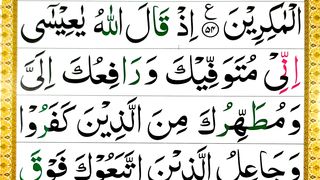 الْمٰكِرِيْنَ ۝٥٤ ع اِذْ قَالَ اللّٰهُ يٰعِيْسٰۤى
اِنِّىْ مُتَوَفِّيْكَ وَرَافِعُكَ اِلَىَّ
وَمُطَهِّرُكَ مِنَ الَّذِيْنَ كَفَرُوْا
وَجَاعِلُ الَّذِيْنَ اتَّبَعُوْكَ فَوْقَ